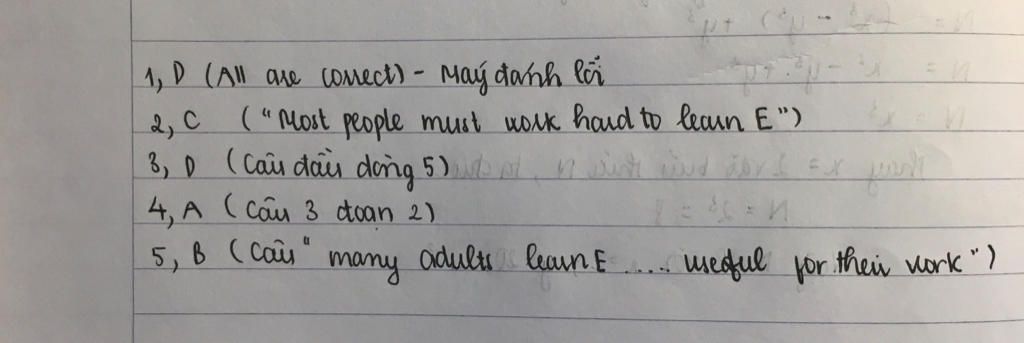 1, D (All are correct) - Máy đánh lỗi
2, C ("Most people must work hard to learn E")
3, D (Câu đầu dòng 5)
4, A (Câu 3 đoạn 2)
5, B (Câu "many adults learn E ..... useful for their work")